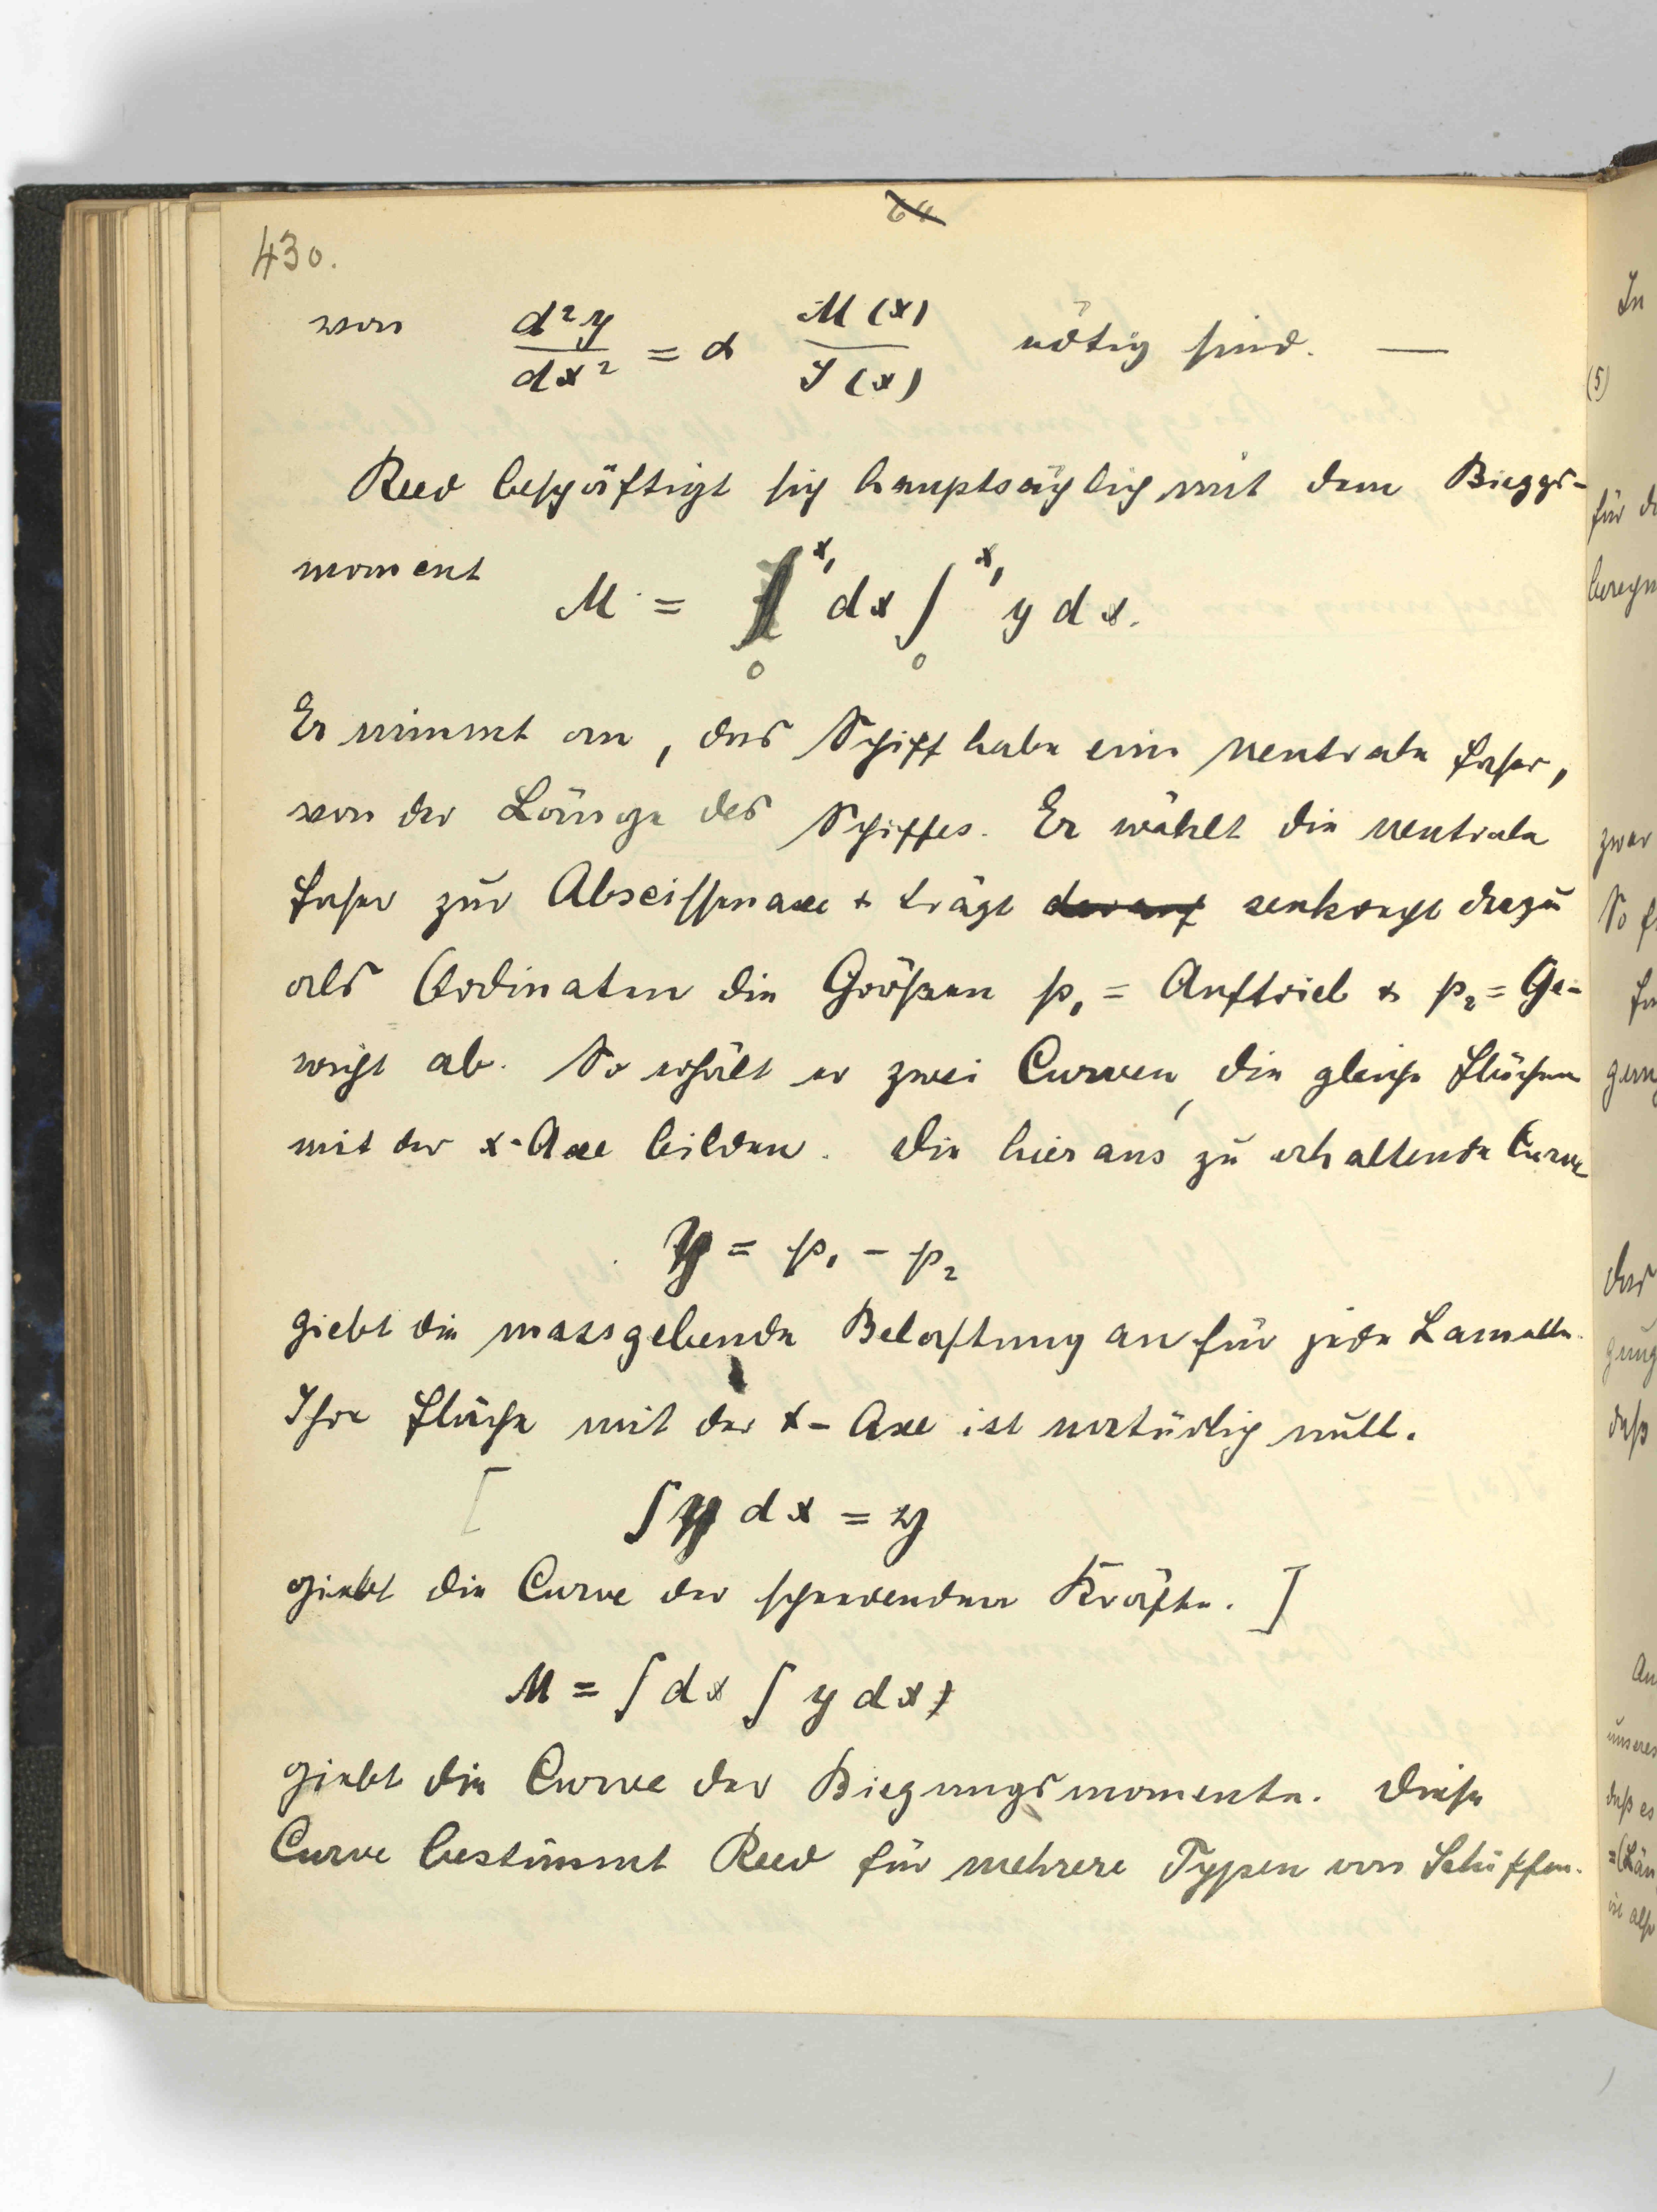 64
430.
von d²y/dx² = α M(x)/J(x) nötig sind. —
Reed beschäftigt sich hauptsächlich mit dem Bieggs-
moment
M = ∫₀^x₁ dx ∫₀^x₁ y dx.
Er nimmt an, das Schiff habe eine neutrale Faser,
von der Länge des Schiffes. Er wählt die neutrale
Faser zur Abscissenaxe + trägt darauf senkrecht dazu
als Ordinaten die Größen p₁ = Auftrieb & p₂ = Ge-
wicht ab. So erhält er zwei Curven, die gleiche Flächen
mit der x-Axe bilden. Die hieraus zu erhaltende Curve
y = p₁ - p₂
giebt die massgebende Belastung an für jede Lamelle.
Ihre Fläche mit der x-Axe ist natürlich null.
[ ∫ y dx = y
giebt die Curve der scheerenden Kräfte. ]
M = ∫ dx ∫ y dx
giebt die Curve der Biegungsmomente. Diese
Curve bestimmt Reed für mehrere Typen von Schiffen.
In
(5)
für
zwar
So
das
daß
unseres
daß es